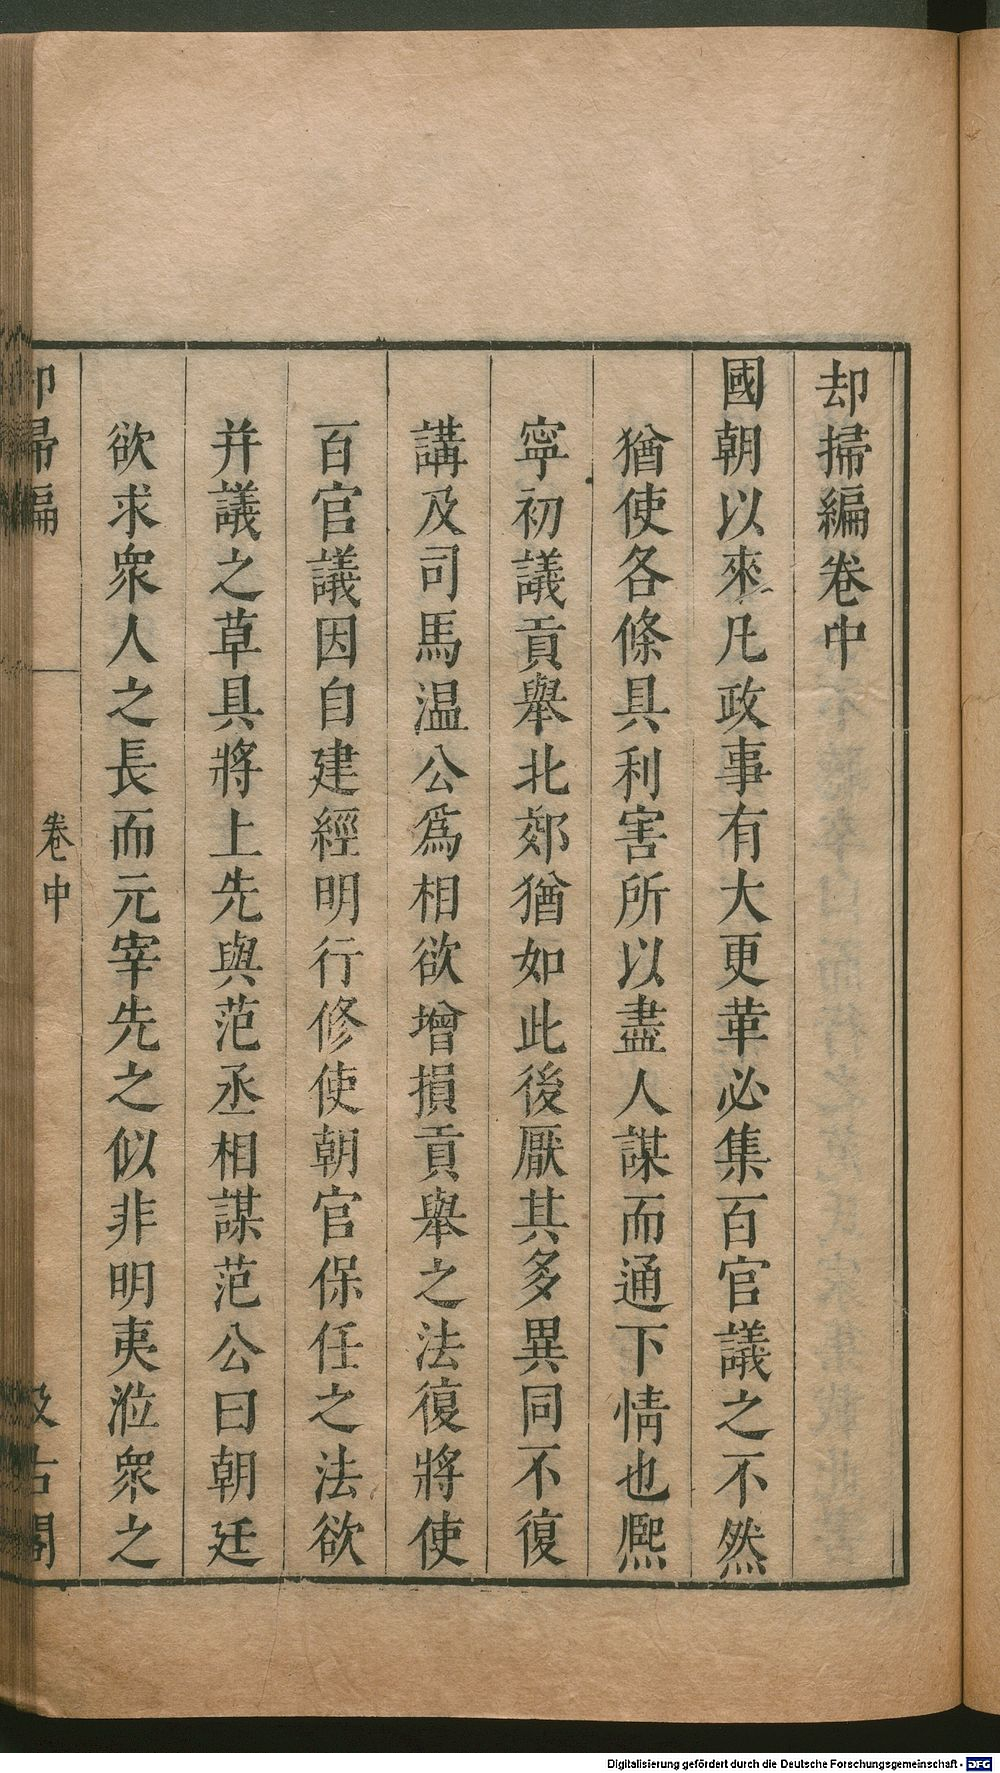 却掃編卷中
國朝以來凡政事有大更革必集百官議之不然
猶使各條具利害所以盡人謀而通下情也熈
寧初議貢舉北郊猶如此後厭其多異同不復
講及司馬温公爲相欲增損貢舉之法復將使
百官議因自建經明行修使朝官保任之法欲
并議之草具將上先與范丞相謀范公曰朝廷
欲求衆人之長而元宰先之似非明夷涖衆之
却掃編
卷中
汲古閣
Digitalisierung gefördert durch die Deutsche Forschungsgemeinschaft - DFG